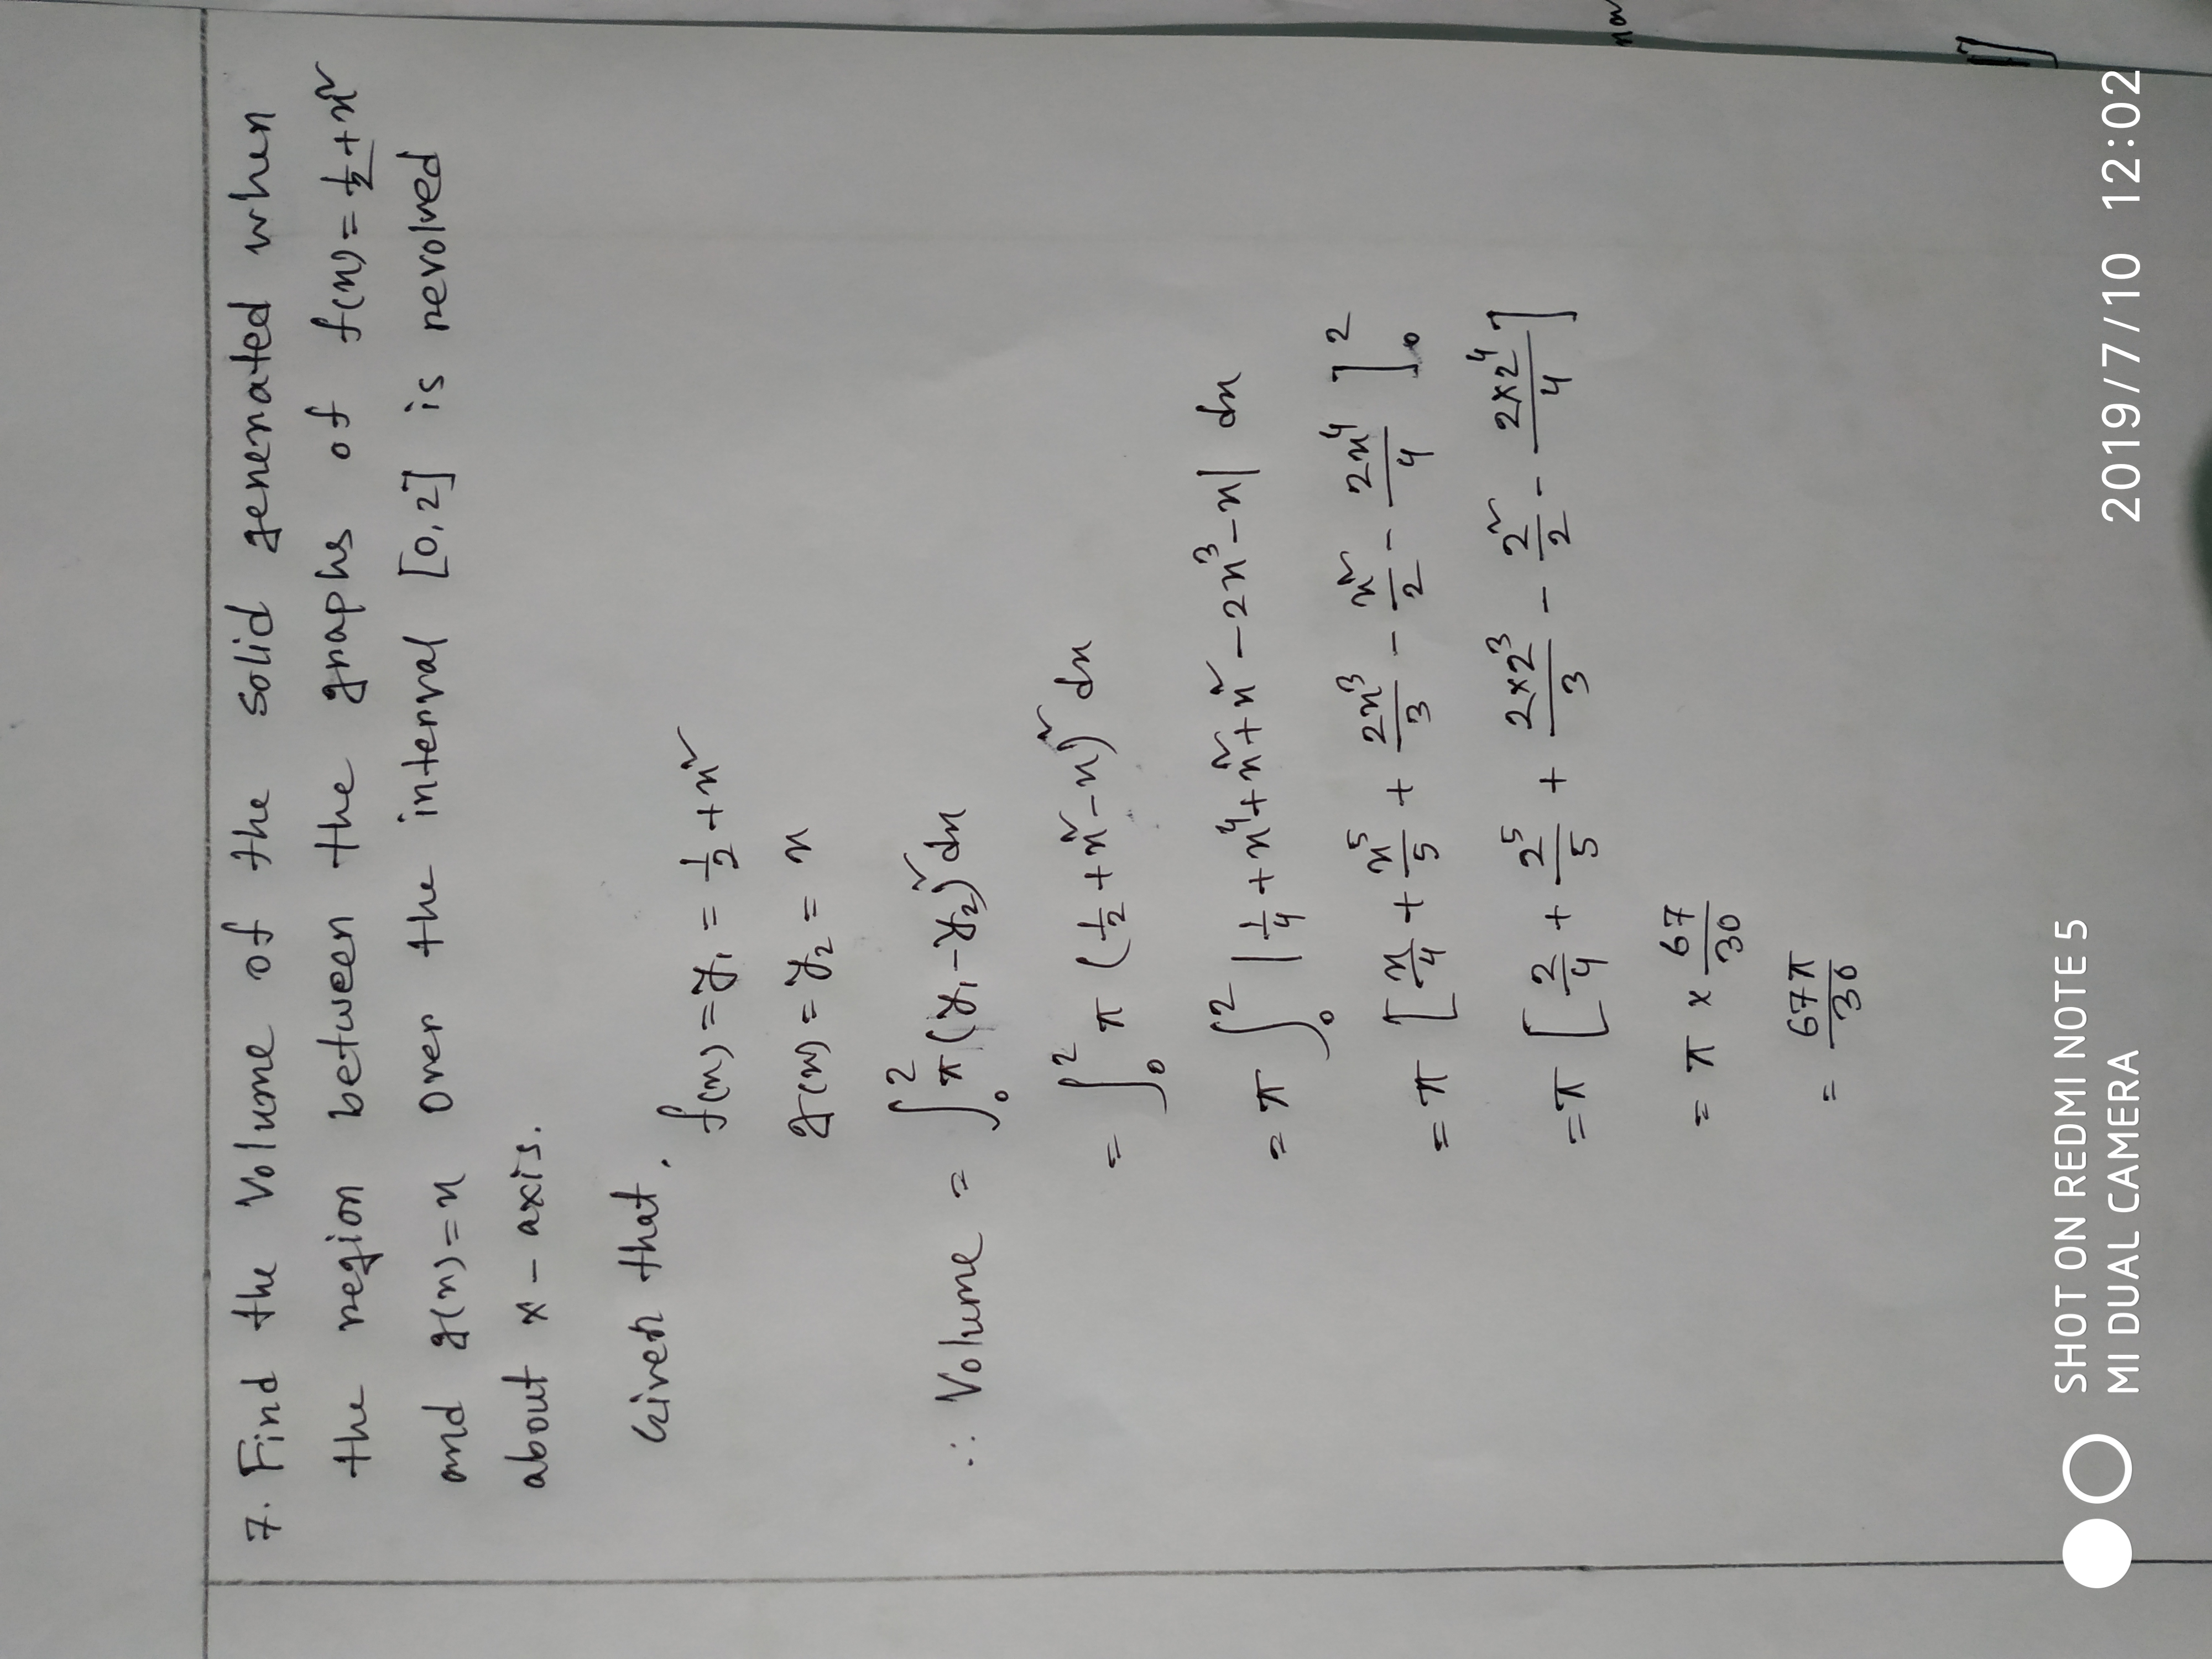 7. Find the Volume of the solid generated when
the region between the graphs of f(x) = 1/2 + x²
and g(x) = x over the interval [0, 2] is revolved
about x - axis.
Given that,
f(x) = y₁ = 1/2 + x²
g(x) = y₂ = x
∴ Volume = ∫₀² π (y₁ - y₂)² dx
= ∫₀² π (1/2 + x² - x)² dx
= π ∫₀² |1/4 + x⁴ + x² + x² - 2x³ - x| dx
= π [x/4 + x⁵/5 + 2x³/3 - x²/2 - 2x⁴/4]₀²
= π [2/4 + 2⁵/5 + 2×2³/3 - 2²/2 - 2×2⁴/4]
= π × 67/30
= 67π/30
SHOT ON REDMI NOTE 5
MI DUAL CAMERA
2019/7/10 12:02